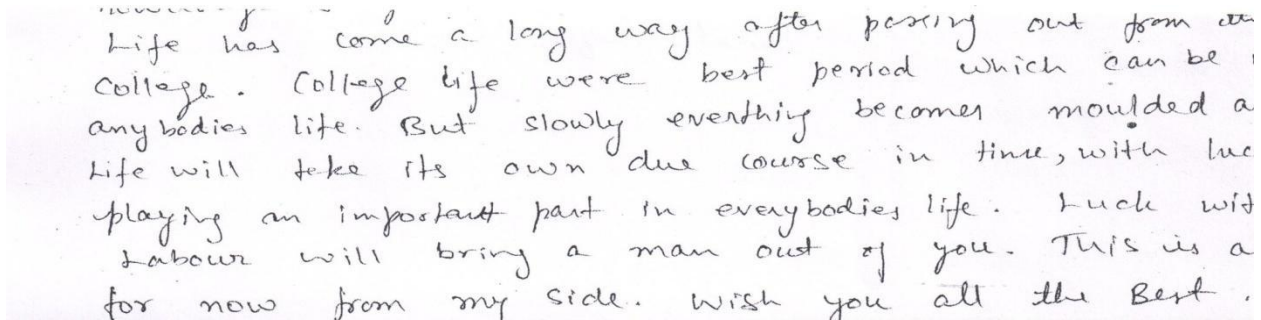 Life has come a long way after passing out from
college. College life were best period which can be
anybodies life. But slowly everthing becomes moulded a
Life will teke its own due course in time, with luc
playing an important part in everybodies life. Luck wit
Labour will bring a man out of you. This is a
for now from my side. Wish you all the Best.